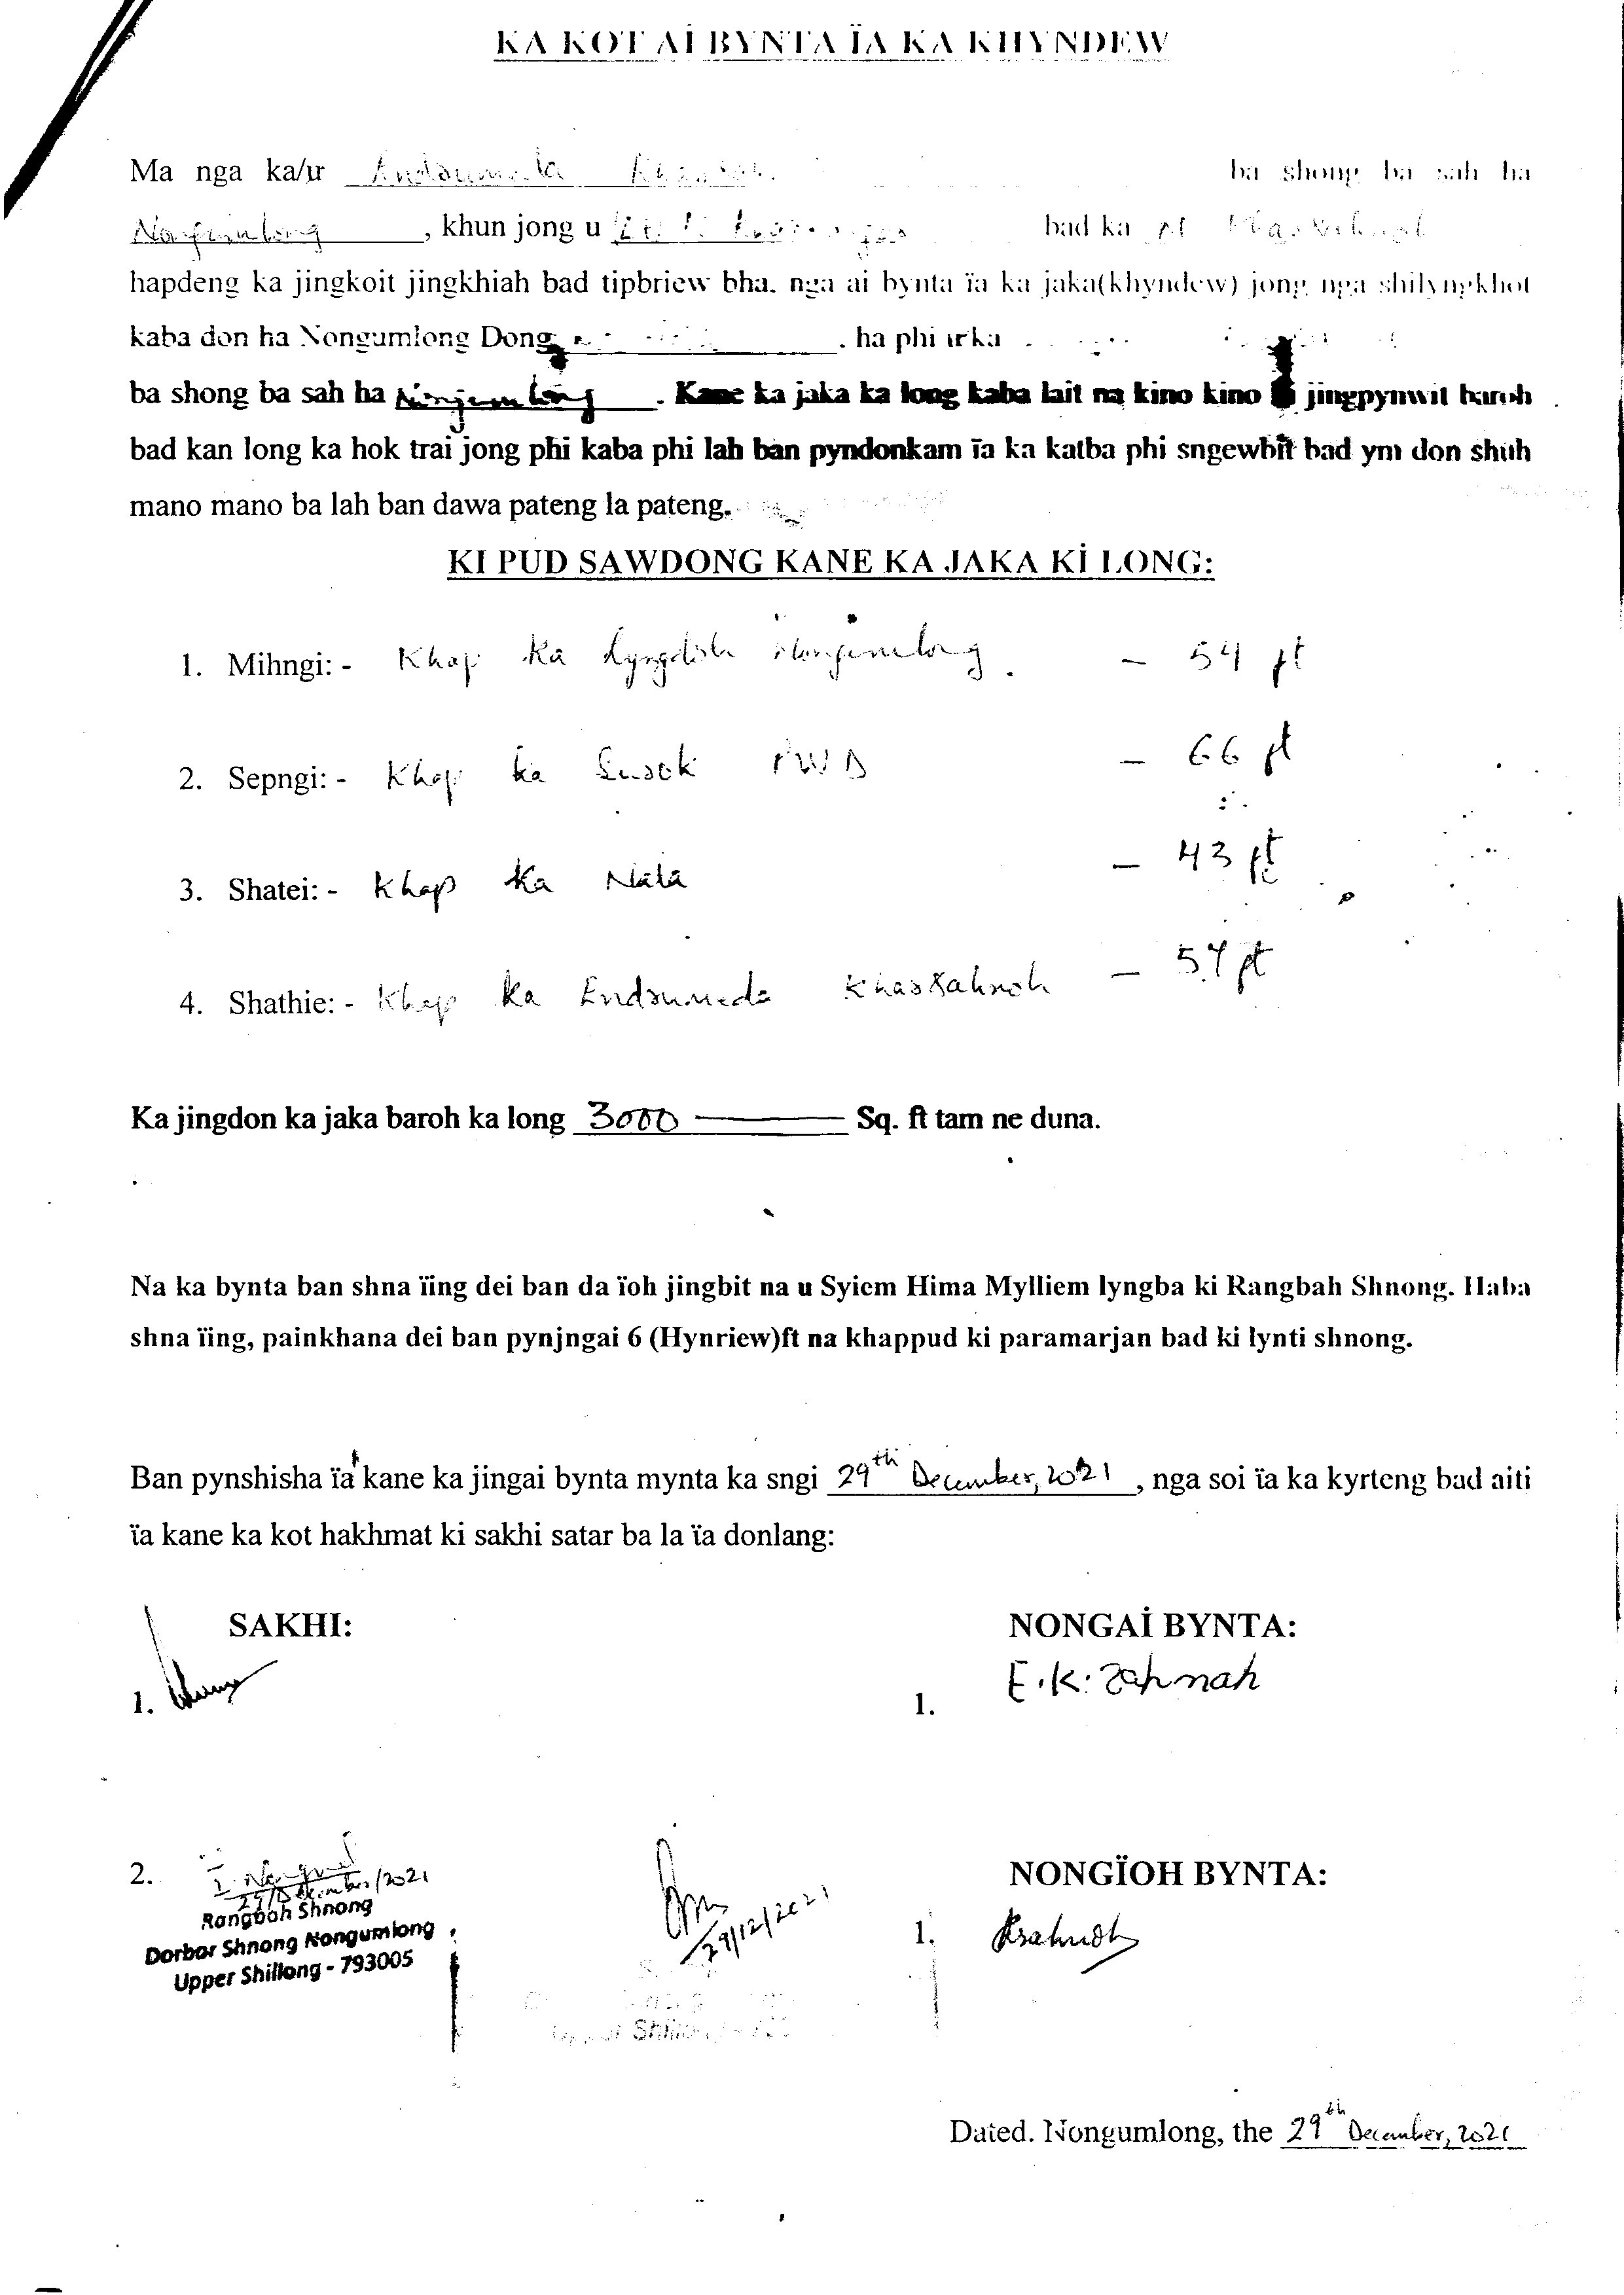 KA KOT AİBYNTA ÏA KA KHYNDEW
Ma nga ka/u ba shong ba sah ha
Nongumlong, khun jong u bad ka
hapdeng ka jingkoit jingkhiah bad tipbriew bha. nga ai bynta ïa ka jaka(khyndew) jong nga shilyngkhot
kaba don ha Nongumlong Dong . ha phi u ka
ba shong ba sah ha Nongumlong. Kane ka jaka ka long kaba lait na kino kino jingpynwit baroh
bad kan long ka hok trai jong phi kaba phi lah ban pyndonkam ïa ka katba phi sngewbit bad ym don shuh
mano mano ba lah ban dawa pateng la pateng.
KI PUD SAWDONG KANE KA JAKA Kİ LONG:
1. Mihngi: - Khap ka Lyngdoh Nongumlong. - 54 ft
2. Sepngi: - Khap ka Surok PWD - 66 ft
3. Shatei: - Khap ka Nala - 43 ft
4. Shathie: - Khap ka Endoumeda Kharsahnoh - 57 ft
Ka jingdon ka jaka baroh ka long 3000 Sq. ft tam ne duna.
Na ka bynta ban shna ïing dei ban da ïoh jingbit na u Syiem Hima Mylliem lyngba ki Rangbah Shnong. Haba
shna ïing, painkhana dei ban pynjngai 6 (Hynriew)ft na khappud ki paramarjan bad ki lynti shnong.
Ban pynshisha ïa kane ka jingai bynta mynta ka sngi 29th December, 2021, nga soi ïa ka kyrteng bad aiti
ïa kane ka kot hakhmat ki sakhi satar ba la ïa donlang:
SAKHI: NONGAİ BYNTA:
1. 1. E.K. Sahnah
2. NONGÏOH BYNTA:
29/December/2021
Rangbah Shnong
Dorbar Shnong Nongumlong
Upper Shillong - 793005
29/12/2021
1.
Dated. Nongumlong, the 29th December, 2021